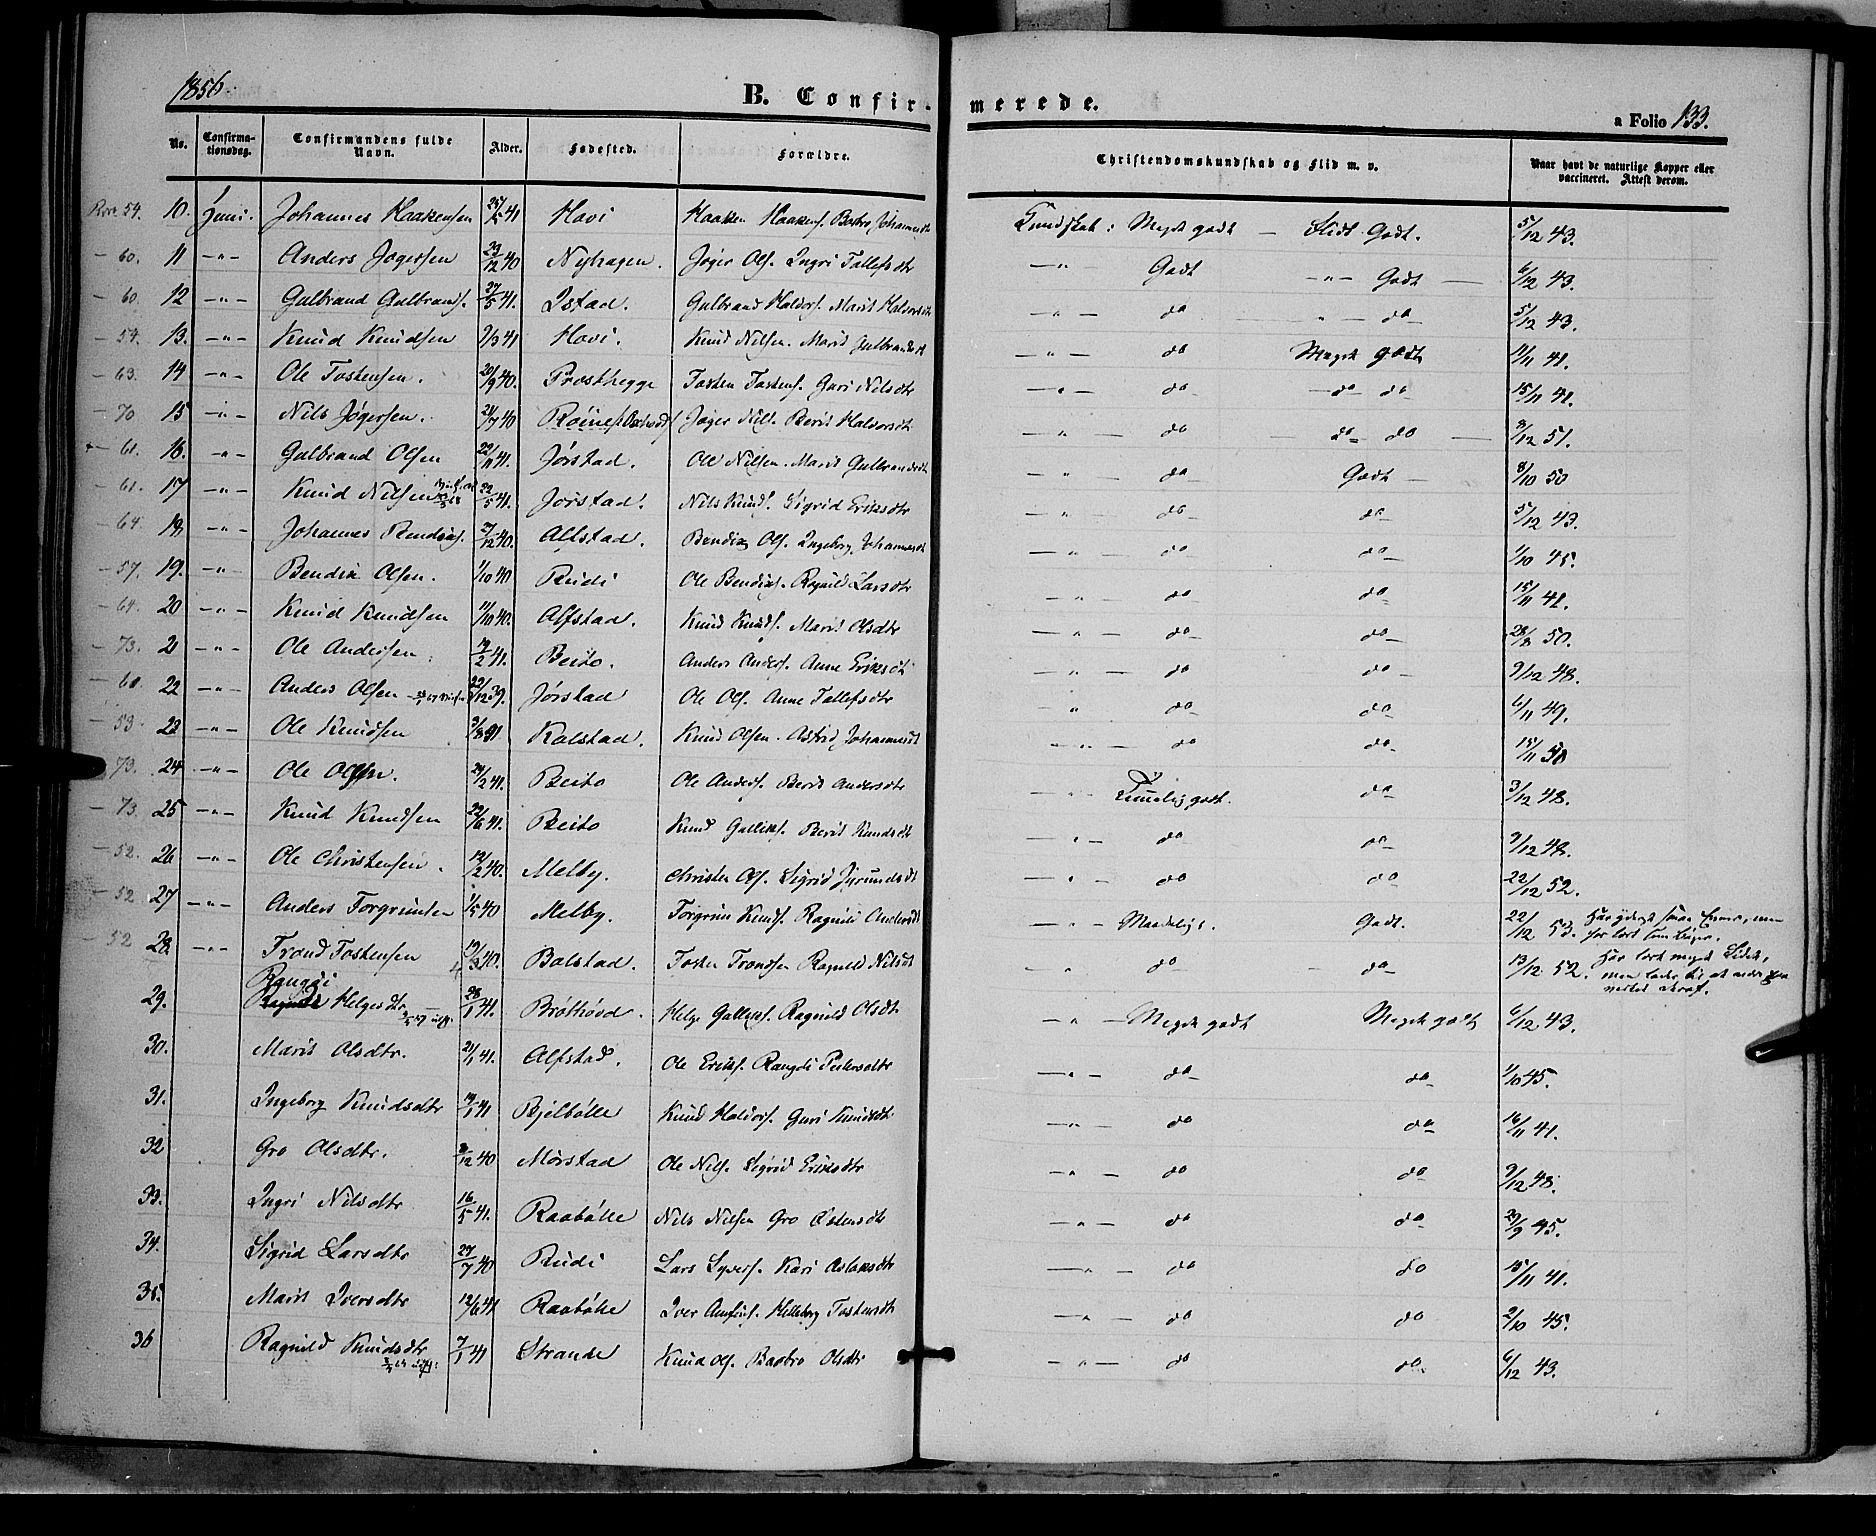 1856.
B. Confir-
merede.
a Folio 133.
No. Confirma-tionsdag. Confirmandens fulde Navn. Alder. Fødested. Forældre. Christendomskundskab og Flid m. v. Naar havt de naturlige Kopper eller vaccineret. Attest derom.
54. 10. Juni. Johannes Haakensen 25/5 41 Hovi Haaken Haakens. Barbro Johannesdtr Kundskab: Meget godt — Flid: Godt. 5/12 43.
— 60. 11 —"— Anders Jøgersen 23/12 40 Nyhagen. Jøger Ols. Ingri Tollefsdtr —"— Godt —"— Godt — 6/12 43.
— 60. 12 —"— Gulbrand Gulbrands. 27/5 41. Istad. Gulbrand Haldors. Marit Haldorsdtr —"— do —"— do 5/12 43.
— 54. 13. —"— Knud Knudsen 9/3 41 Hovi. Knud Nilsen. Marit Gulbrandsdt —"— do Meget godt 11/11 41.
— 63. 14 —"— Ole Tostensen. 20/9 40. Prosthegge Tosten Tostens. Guri Nilsdtr —"— do —do do 15/11 41.
— 70 15 —"— Nils Jøgersen. 21/7 40 Røine Jøger Nils. Berit Haldorsdt —"— do — do do — 8/12 51.
— 61. 16. —"— Gulbrand Olsen 22/11 41. Jørstad. Ole Nilsen. Marit Gulbrandsdt —"— do Godt — 8/10 50
— 61. 17 —"— Knud Nilsen 22/5 41. Jørstad. Nils Knuds. Sigrid Eriksdtr —"— do do 5/12 43.
— 64. 18. —"— Johannes Bendixs. 27/12 40. Alfstad. Bendix Ols. Ingeborg Johannesdt —"— do do 1/10 45.
— 57. 19. —"— Bendix Olsen. 1/10 40 Rudi Ole Bendixs. Ragnild Larsdtr —"— do do 15/11 41.
— 64. 20 —"— Knud Knudsen 11/10 40. Alfstad. Knud Knuds. Marit Olsdtr —"— do do 28/8 50.
— 73. 21 —"— Ole Andersen. 19/2 41. Beito. Anders Anders. Anne Eriksdt —"— do do 9/12 48.
— 60. 22 —"— Anders Olsen 22/12 39. Jørstad Ole Ols. Anne Tollefsdtr —"— do do 6/11 49.
— 53. 23 —"— Ole Knudsen 3/8 41 Kolstad. Knud Olsen. Astrid Johannesdt —"— do do 15/11 50
— 73. 24 —"— Ole Olsen. 24/2 41. Beito Ole Anders. Berit Andersdtr —"— Temmelig godt. do 3/12 48.
— 73. 25 —"— Knud Knudsen 22/6 41. Beito Knud Galliks. Berit Knudsdt —"— do do 9/12 48.
— 52. 26 —"— Ole Christensen. 12/2 40. Melby. Christen Ols. Sigrid Jørundsdt —"— do do 22/12 52.
— 52 27 —"— Anders Torgrimsen 1/5 40 Melby. Torgrim Knuds. Ragnild Andersdt —"— Maadelige. Godt. 22/12 53. Har
— 52 28 —"— Trond Tostensen 19/3 40. Bolstad. Tosten Trondsen Ragnild Nilsdt " do do 13/12 52. Har lært meget Lidet,
Rangdi
29. Helgesdtr. 28/1 41. Brøthovd. Helge Galliks. Ragnild Olsdt —"— Meget godt Meget godt 6/12 43.
30. Marit Olsdtr. 21/1 41. Alfstad. Ole Eriks. Rangdi Pedersdtr —"— do do 1/10 45.
31. Ingeborg Knudsdtr 19/1 41 Bjelbølle Knud Haldors. Guri Knudsdt —"— do do 16/11 41.
32 Gro Olsdtr. 8/12 40 Mørstad Ole Nils. Sigrid Eriksdtr —"— do do 9/12 48.
33. Ingri Nilsdtr 16/5 41. Raabølle Nils Nilsen Gro Østensdtr —"— do do 29/9 45.
34. Sigrid Larsdtr 27/7 40 Rudi Lars Syvers. Kari Aslaksdtr —"— do do 15/11 41.
35. Marit Iversdtr 12/6 41 Raabølle Iver Amfins. Helleborg Tostensdtr —"— do do 2/10 45.
36 Ragnild Knudsdtr 7/1 41 Strande Knud Ols. Barbro Olsdtr —"— do do 6/12 43.